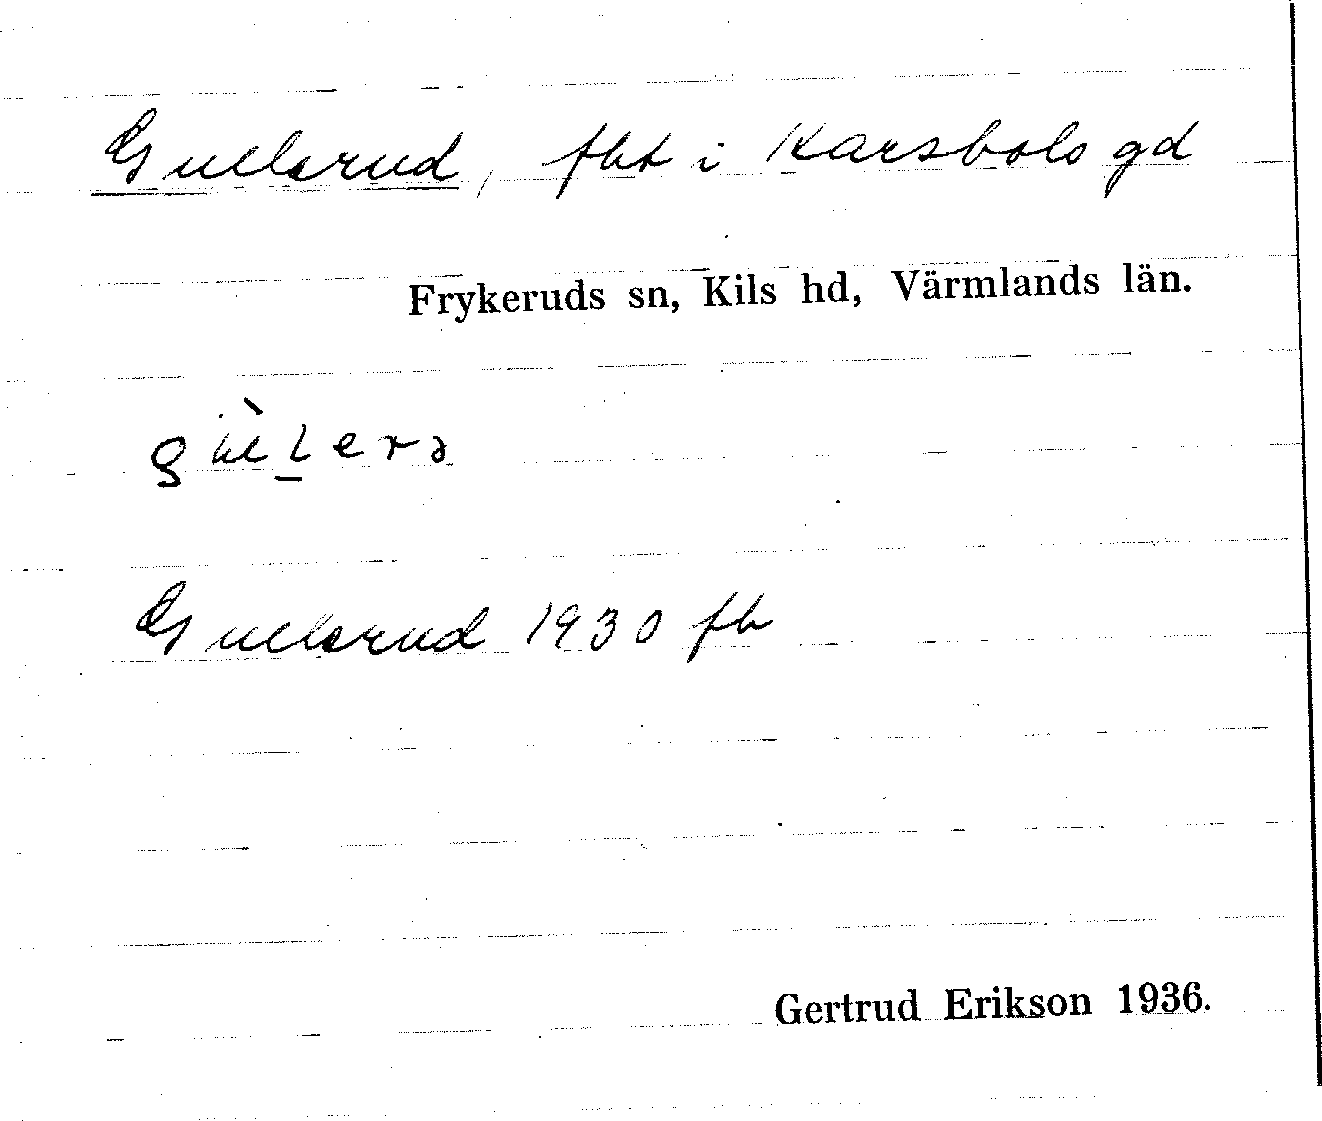 Gullerud, fht i Karsbols gd
Frykeruds sn, Kils hd, Värmlands län.
Gullerud 1930 fb
Gertrud Erikson 1936.